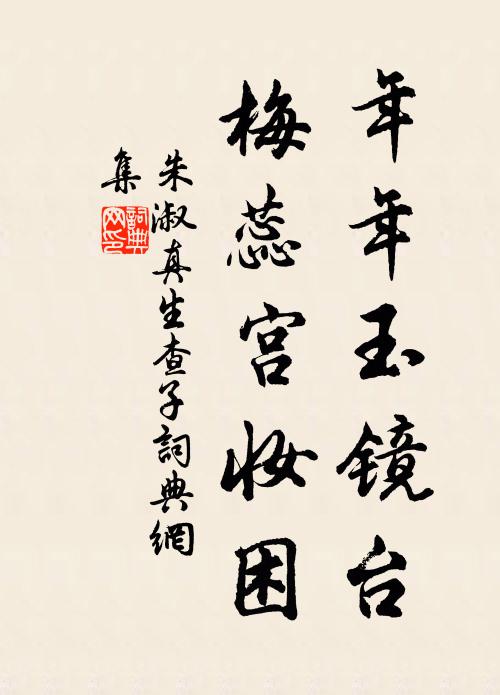 年年玉镜台
梅蕊宫妆困
朱淑真生查子詞典網
集
詞典网印